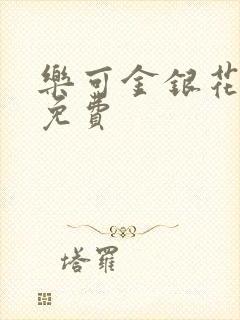 樂可金銀花
免費
塔羅